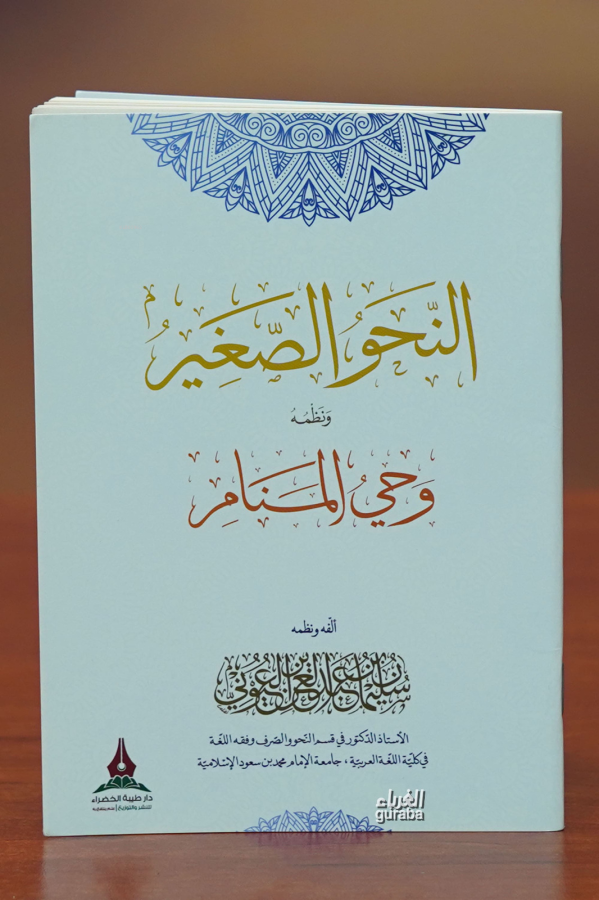 النَّحَوُ الصَّغِيرُ
وَنَظْمُهُ
وَحْيُ المَنَامِ
ألفه ونظمه
سليمان بن عبدالعزيز العيوني
الأستاذ الدكتور في قسم النحو والصرف وفقه اللغة
في كليّة اللغة العربية، جامعة الإمام محمد بن سعود الإسلامية
دار طيبة الخضراء
للنشر والتوزيع
الغرباء
guraba